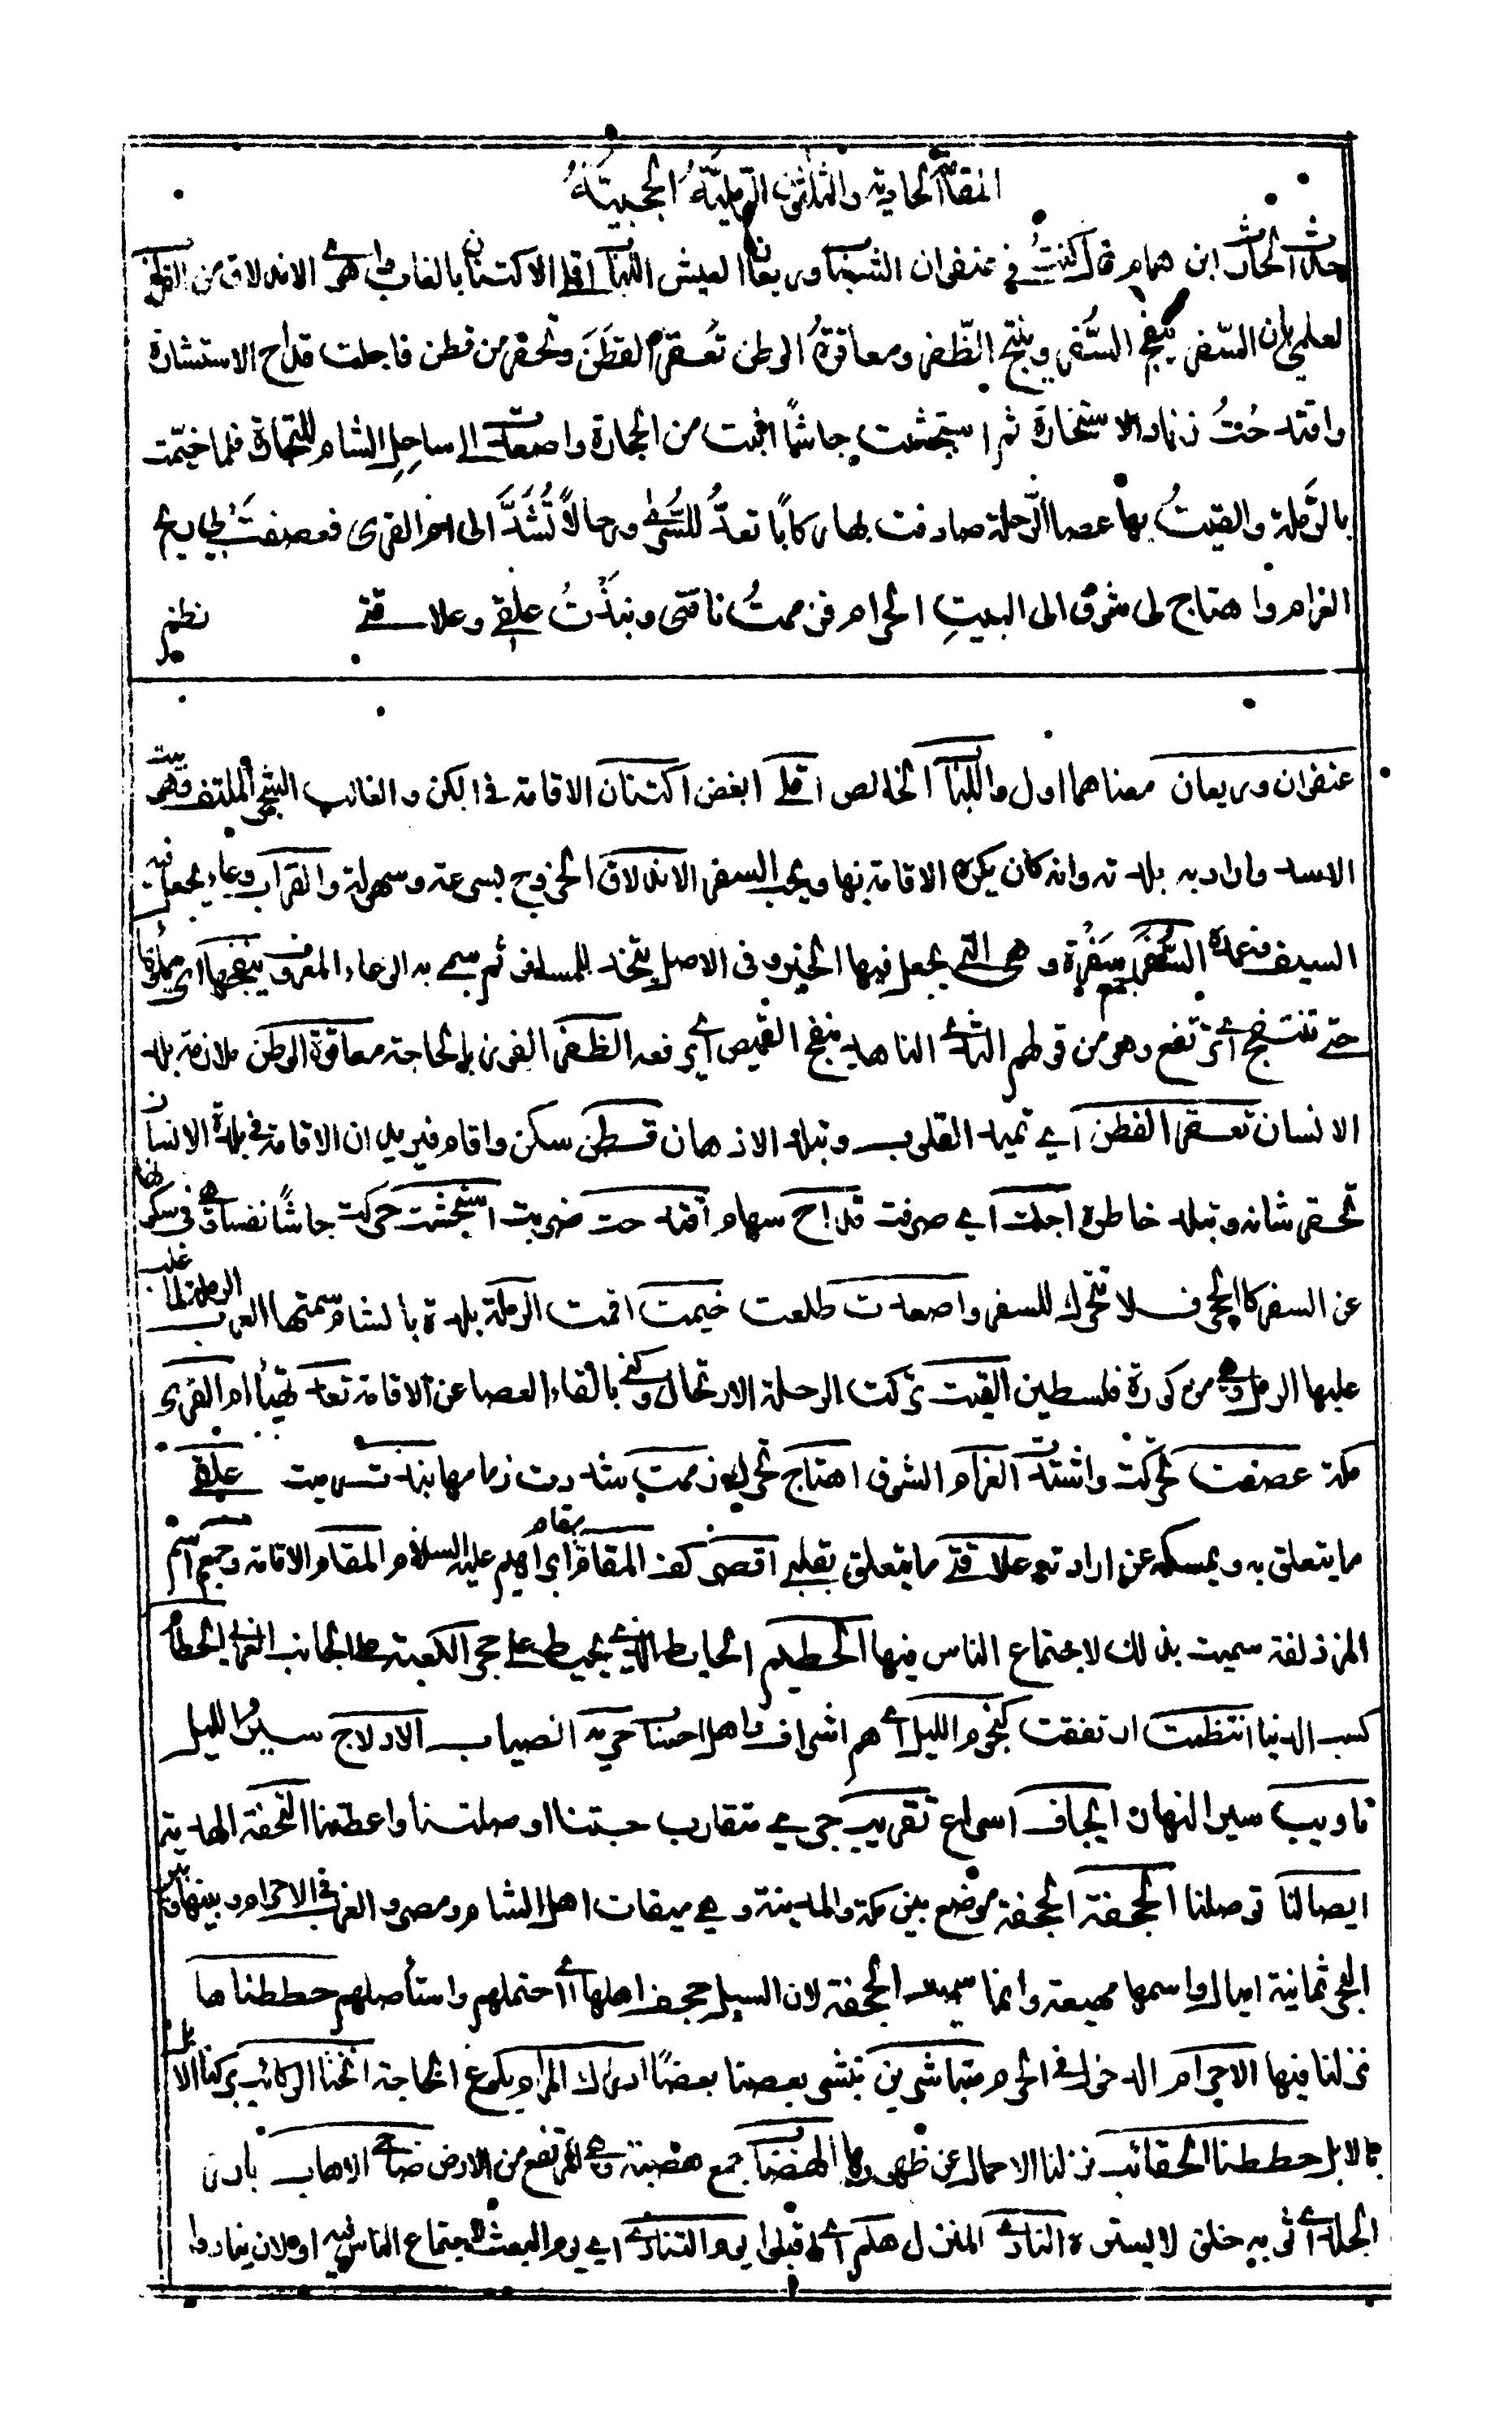 المقامة الحادية والثلثون الرمليّة الحجيّة
حدث الحارث ابن همام قال كنتُ في عنفوان الشباب وريعان العيش اللباب اقلي الاكتنان بالغاب واهوى الاندلاق من القراب
لعلمي بان السفر ينفج السُّفر وينتج الظّفر ومعاقرةُ الوطن تُعقر الفِطَنَ وتحقر من قطن فاجلت قداح الاستشارة
واقتدحتُ زناد الاستخارة ثم استجشت جاشًا اثبت من الحجارة واصعدت الى ساحِلِ الشام للتجارة فلما خيّمت
بالرَّملة والقيتُ بها عصا الرّحلة صادفت بها ركابًا تعدُّ للسُّرى ورحالاً تُشَدُّ الى ام القرى فعصفتْ بي ريح
الغرام واهتاج لى شوق الى البيتِ الحرام فزممتُ ناقتى ونبذْتُ علقي وعلاقتي نظم
عنفوان وريعان معناهما اول واللباب الخالص اقلي ابغض اكتنان الاقامة في الكن والغاب الشجر الملتف وهي بيت
الاسد واراد به بلدته وانه كان يكره الاقامة بها ويحب السفر الاندلاق الخروج بسرعة وسهولة والقراب وعاء يجعل فيه
السيف وغمده السُّفَر جمع سُفْرة وهى التي يجعل فيها الخبز وفى الاصل يتخذ للمسافر ثم سمى به الوعاء المعروف ينفجها اى يملؤها
حتى تنتفج اى ترتفع وهو من قولهم الثدي الناهد ينفج القميص اي يرفعه الظفر الفوز بالحاجة معاقرة الوطن ملازمة بلد
الانسان تعقر الفطن اي تميد القلوب وتبلد الاذهان قطن سكن واقام فيريد ان الاقامة في بلدة الانسان
تحقر شانه وتبلد خاطره اجلت اي صرفت قداح سهام اقتدحت ضربت استجشت حركت جاشًا نفسا هي في سكونها
عن السفر كالحجر فلا تتحرك للسفر واصعدت طلعت خيمت اقمت الرملة بلدة بالشام سمتها العرب الرملة لما غلب
عليها الرمل وهي من كورة فلسطين القيت تركت الرحلة الارتحال وكنى بالقاء العصا عن الاقامة تعد تهيّا ام القرى
مكة عصفت تحركت واشتدت الغرام الشوق اهتاج تحرك زممت شددت زمامها نبذت رميت علقي
ما يتعلق به ويمسكه عن ارادته علاقتي ما يتعلق بقلبي اقصر كف المقام مقام ابراهيم عليه السلام المقام الاقامة وجمع اسم
المزدلفة سميت بذلك لاجتماع الناس فيها الحطيم الحايط الذي يحيط على حجر الكعبة من الجانب الغربي الحطام
كسب الدنيا انتظمت اتفقت كنجوم الليل اي هم اشراف واهل احسان جرية انصباب الادلاج سير الليل
تاويب سير النهار ايجاف اسراع تقريب جري متقارب حبتنا اوصلتنا واعطتنا التحفة الهدية
ايصالنا توصلنا الجحفة الجحفة موضع بين مكة والمدينة وهي ميقات اهل الشام ومصر والغرب في الاحرام وبينها وبين
البحر ثمانية اميال واسمها مهيعة وانما سميت الجحفة لان السيل جحف اهلها اي احتملهم واستأصلهم حططناها
نزلنا فيها الاحرام الدخول في الحرم متباشرين يبشر بعضنا بعضًا ادراك المرام بلوغ الحاجة انخنا الركائب بركنا الابل
بالابل حططنا الحقائب نزلنا الاحمال عن ظهورها الهضاب جمع هضبة وهي المرتفع من الارض ضاحي الاهاب بادى
الجلد اي ثوبه خلق لا يستره النادي المنزل هلم اي اقبلوا يوم التنادي اي يوم البعث لاجتماع الناس فيه اولان ينادوا